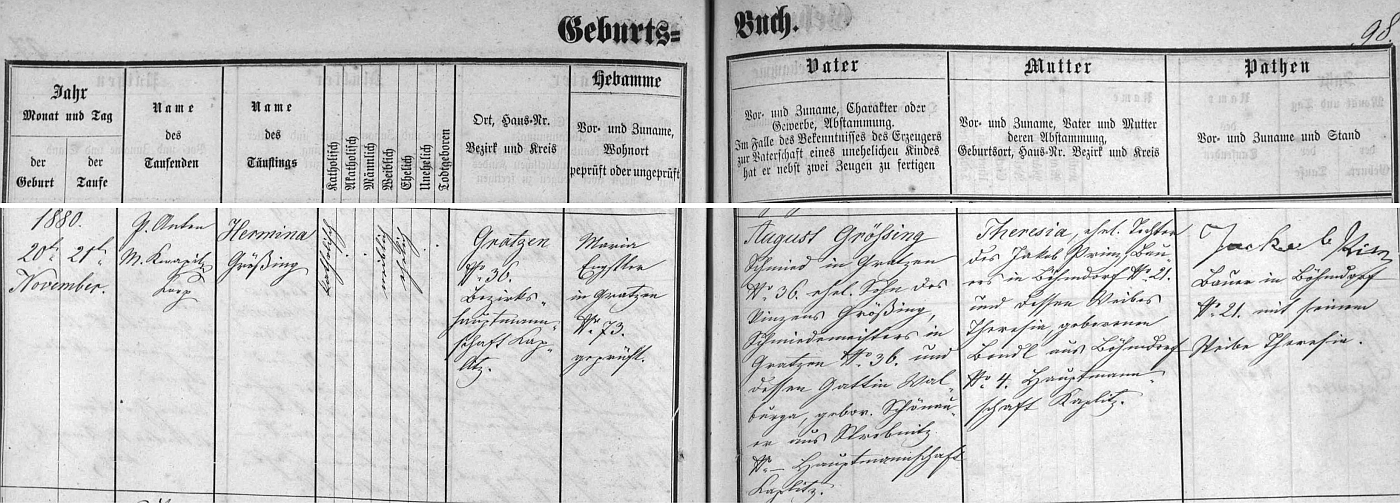 Geburts=
Buch.
98.
Jahr
Monat und Tag
der
Geburt
der
Taufe
Name
des
Taufenden
Name
des
Täuflings
Katholisch
Akatholisch
Männlich
Weiblich
Ehelich
Unehelich
Todtgeboren
Ort, Haus-Nr.
Bezirk und Kreis
Hebamme
Vor- und Zuname,
Wohnort
geprüft oder ungeprüft
Vater
Vor- und Zuname, Charakter oder
Gewerbe, Abstammung.
Im Falle des Bekenntnisses des Erzeugers
zur Vaterschaft eines unehelichen Kindes
hat er nebst zwei Zeugen zu fertigen
Mutter
Vor- und Zuname, Vater und Mutter
deren Abstammung,
Geburtsort, Haus-Nr. Bezirk und Kreis
Pathen
Vor- und Zuname und Stand
1880.
20t. 21t.
November.
P. Anton
M. Knapitz
Hermina
Größing
katholisch
weiblich
ehelich
Gratzen
No 36.
Bezirks-
hauptmann-
schaft Kap-
litz.
Maria
Engstler
in Gratzen
No. 73.
geprüft.
August Größing
Schmied in Gratzen
No. 36. ehel. Sohn des
Vinzens Größing,
Schmiedemeisters in
Gratzen No. 36. und
dessen Gattin Wal-
burga, gebor. Schönau-
er aus Strobnitz
No – Hauptmannschaft
Kaplitz.
Theresia, ehel. Tochter
des Jakob Prinz, Bau-
ers in Böhmdorf No. 21.
und dessen Weibes
Theresia, geborenen
Bendl aus Böhmdorf
No. 4. Hauptmann-
schaft Kaplitz.
Jackob
Bauer in Böhmdorf
No. 21. mit seinem
Weibe Theresia.